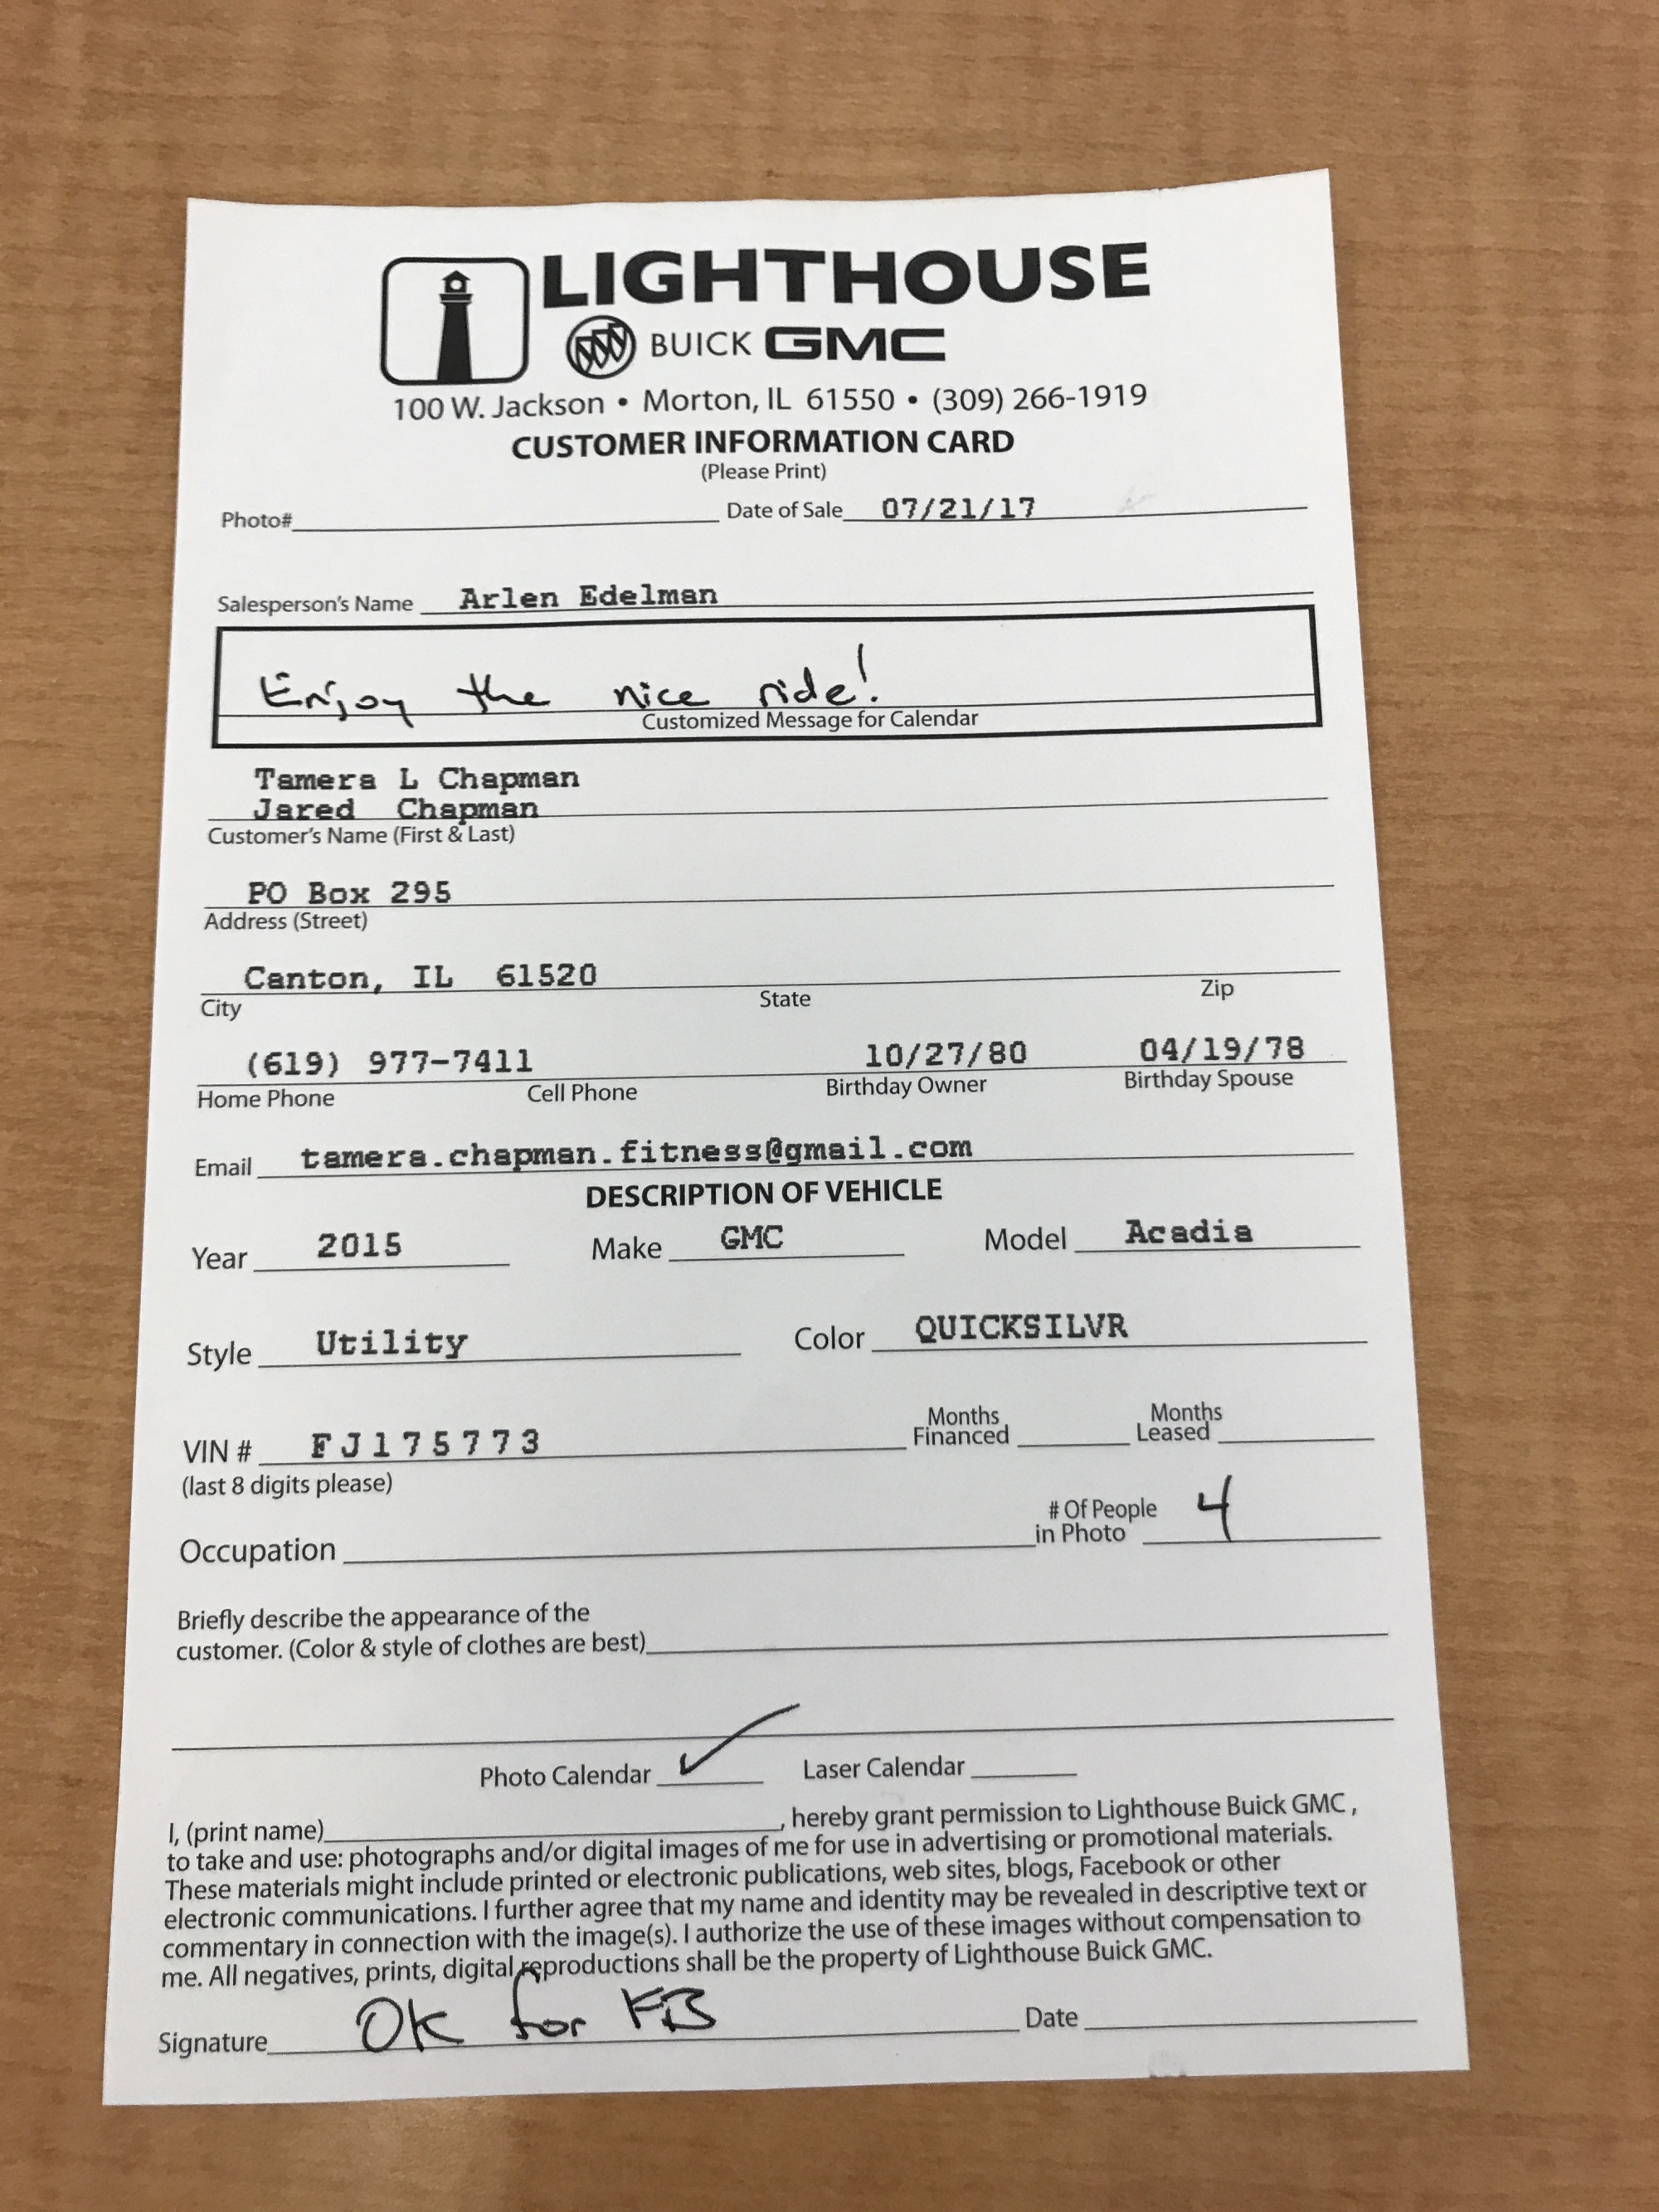 LIGHTHOUSE
BUICK GMC
100 W. Jackson • Morton, IL 61550 • (309) 266-1919
CUSTOMER INFORMATION CARD
(Please Print)
Photo# Date of Sale 07/21/17
Salesperson's Name Arlen Edelman
Enjoy the nice ride!
Customized Message for Calendar
Tamera L Chapman
Jared Chapman
Customer's Name (First & Last)
PO Box 295
Address (Street)
Canton, IL 61520
City State Zip
(619) 977-7411 10/27/80 04/19/78
Home Phone Cell Phone Birthday Owner Birthday Spouse
Email tamera.chapman.fitness@gmail.com
DESCRIPTION OF VEHICLE
Year 2015 Make GMC Model Acadia
Style Utility Color QUICKSILVR
VIN # FJ175773 Months Financed Months Leased
(last 8 digits please)
Occupation # Of People in Photo 4
Briefly describe the appearance of the
customer. (Color & style of clothes are best)
Photo Calendar ✓ Laser Calendar
I, (print name) , hereby grant permission to Lighthouse Buick GMC ,
to take and use: photographs and/or digital images of me for use in advertising or promotional materials.
These materials might include printed or electronic publications, web sites, blogs, Facebook or other
electronic communications. I further agree that my name and identity may be revealed in descriptive text or
commentary in connection with the image(s). I authorize the use of these images without compensation to
me. All negatives, prints, digital reproductions shall be the property of Lighthouse Buick GMC.
Signature OK for FB Date